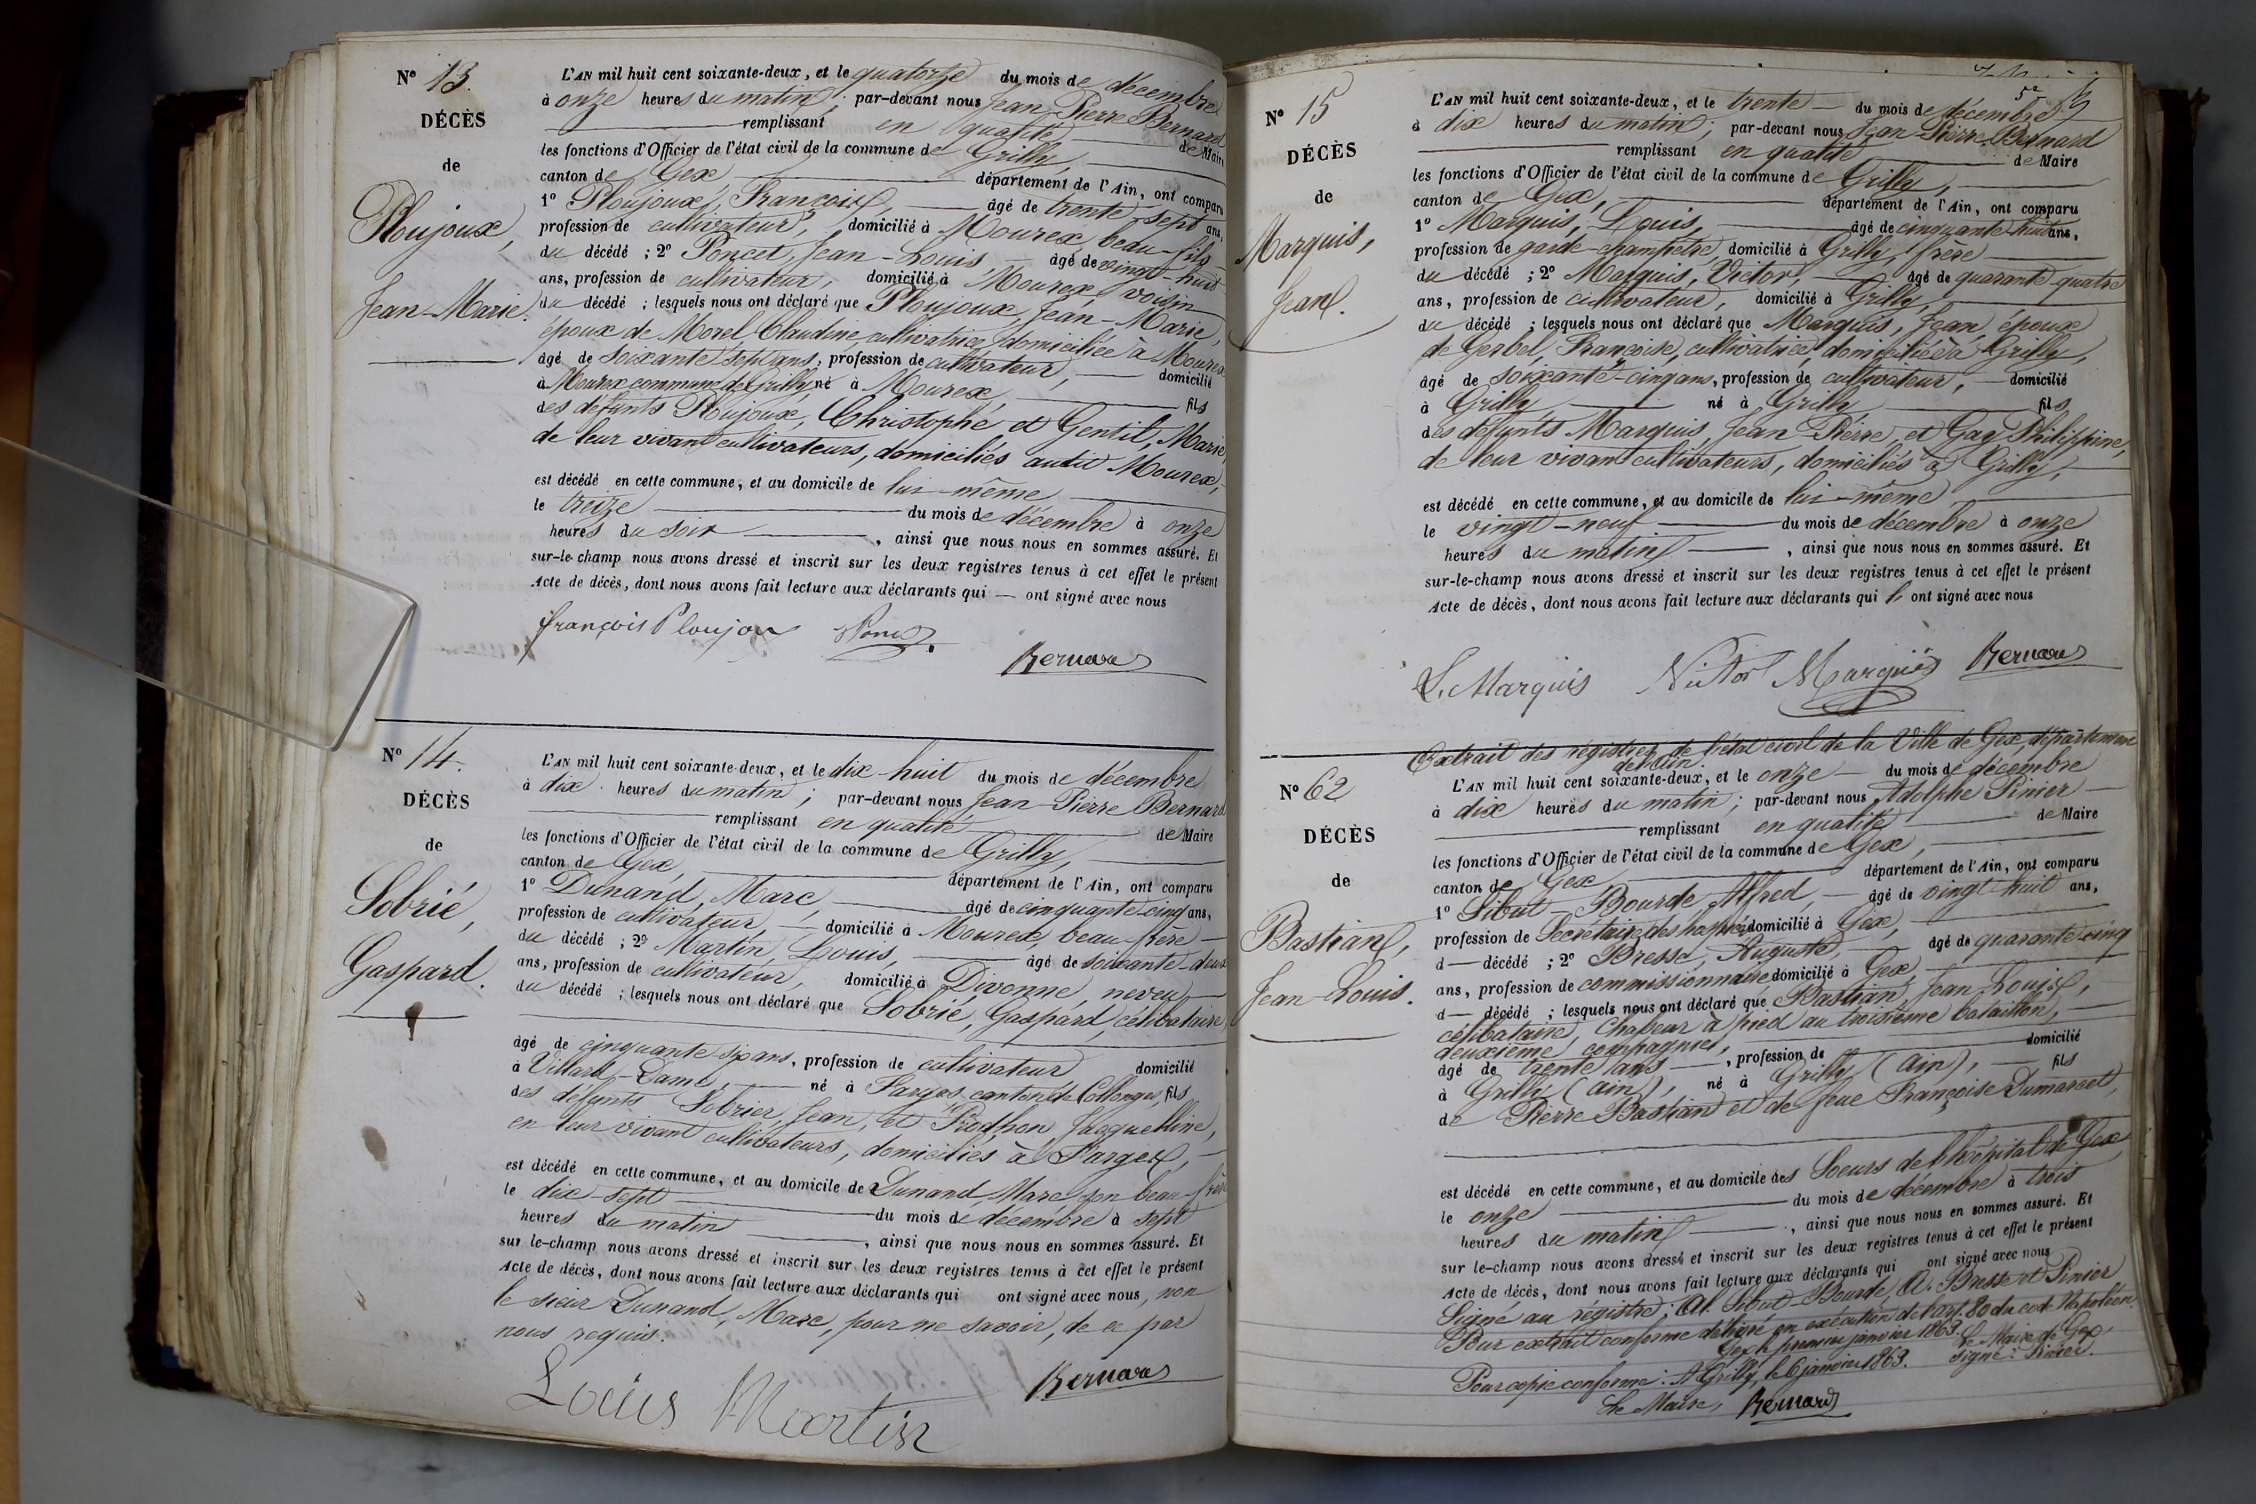 N° 13.
DÉCÈS
de
Ploujoux,
Jean-Marie.
L'AN mil huit cent soixante-deux, et le quatorze du mois de décembre
à onze heures du matin; par-devant nous Jean-Pierre Bernard
remplissant en qualité de Maire
les fonctions d'Officier de l'état civil de la commune de Grilly,
canton de Gex département de l'Ain, ont comparu
1° Ploujoux, François, âgé de trente-sept ans,
profession de cultivateur, domicilié à Mourex, beau-fils
du décédé ; 2° Poncet, Jean-Louis, âgé de vingt-huit
ans, profession de cultivateur, domicilié à Mourex, voisin
du décédé ; lesquels nous ont déclaré que Ploujoux, Jean-Marie,
époux de Morel, Claudine, cultivatrice, domiciliée à Mourex
âgé de soixante-sept ans, profession de cultivateur, domicilié
à Mourex commune de Grilly, né à Mourex, fils
des défunts Ploujoux, Christophe et Gentil, Marie,
de leur vivant cultivateurs, domiciliés audit Mourex,
est décédé en cette commune, et au domicile de lui-même
le treize du mois de décembre à onze
heures du soir, ainsi que nous nous en sommes assuré. Et
sur-le-champ nous avons dressé et inscrit sur les deux registres tenus à cet effet le présent
Acte de décès, dont nous avons fait lecture aux déclarants qui — ont signé avec nous
françois Ploujoux
Bernard
N° 14.
DÉCÈS
de
Sobrié,
Gaspard.
L'AN mil huit cent soixante-deux, et le dix-huit du mois de décembre
à dix heures du matin; par-devant nous Jean-Pierre Bernard
remplissant en qualité de Maire
les fonctions d'Officier de l'état civil de la commune de Grilly,
canton de Gex département de l'Ain, ont comparu
1° Dunand, Marc, âgé de cinquante-cinq ans,
profession de cultivateur, domicilié à Mourex, beau-frère
du décédé ; 2° Martin, Louis, âgé de soixante-deux
ans, profession de cultivateur, domicilié à Divonne, neveu
du décédé ; lesquels nous ont déclaré que Sobrié, Gaspard, célibataire
âgé de cinquante-six ans, profession de cultivateur domicilié
à Villard-Dame, né à Farges, canton de Collonges, fils
des défunts Sobrier, Jean, et Prodhon Jacquelline,
en leur vivant cultivateurs, domiciliés à Farges,
est décédé en cette commune, et au domicile de Dunand Marc son beau-frère
le dix-sept du mois de décembre à sept
heures du matin, ainsi que nous nous en sommes assuré. Et
sur-le-champ nous avons dressé et inscrit sur les deux registres tenus à cet effet le présent
Acte de décès, dont nous avons fait lecture aux déclarants qui ont signé avec nous, non
le sieur Dunand, Marc, pour ne savoir, de ce par
nous requis.
Louis Martin
Bernard
N° 15
DÉCÈS
de
Marquis,
Jean.
L'AN mil huit cent soixante-deux, et le trente du mois de décembre
à dix heures du matin; par-devant nous Jean-Pierre Bernard
remplissant en qualité de Maire
les fonctions d'Officier de l'état civil de la commune de Grilly,
canton de Gex, département de l'Ain, ont comparu
1° Marquis, Louis, âgé de cinquante-huit ans,
profession de garde-champêtre, domicilié à Grilly, frère
du décédé ; 2° Marquis, Victor, âgé de quarante-quatre
ans, profession de cultivateur, domicilié à Grilly,
du décédé ; lesquels nous ont déclaré que Marquis, Jean, époux
de Gerbel, Françoise, cultivatrice, domiciliée à Grilly,
âgé de soixante-cinq ans, profession de cultivateur, domicilié
à Grilly né à Grilly fils
des défunts Marquis, Jean-Pierre, et Gay, Philippine,
de leur vivant cultivateurs, domiciliés à Grilly,
est décédé en cette commune, et au domicile de lui-même
le vingt-neuf du mois de décembre à onze
heures du matin, ainsi que nous nous en sommes assuré. Et
sur-le-champ nous avons dressé et inscrit sur les deux registres tenus à cet effet le présent
Acte de décès, dont nous avons fait lecture aux déclarants qui ont signé avec nous
L. Marquis Victor Marquis Bernard
Extrait des régistres de l'état civil de la Ville de Gex, département
de l'Ain.
N° 62
DÉCÈS
de
Bastian,
Jean-Louis.
L'AN mil huit cent soixante-deux, et le onze du mois de décembre
à dix heures du matin; par-devant nous Adolphe Pinier
remplissant en qualité de Maire
les fonctions d'Officier de l'état civil de la commune de Gex,
canton de Gex département de l'Ain, ont comparu
1° Sibut-Bourde, Alfred, âgé de vingt-huit ans,
profession de Secrétaire des hospices domicilié à Gex,
d— décédé ; 2° Bresse, Auguste, âgé de quarante-cinq
ans, profession de commissionnaire domicilié à Gex,
d— décédé ; lesquels nous ont déclaré que Bastian, Jean-Louis,
célibataire, chasseur à pied au troisième bataillon,
deuxième compagnie,
âgé de trente ans, profession de domicilié
à Grilly (Ain), né à Grilly (Ain), fils
de Pierre Bastian et de feue Françoise Dumarest,
est décédé en cette commune, et au domicile des Soeurs de l'hôpital de Gex
le onze du mois de décembre à trois
heures du matin, ainsi que nous nous en sommes assuré. Et
sur le-champ nous avons dressé et inscrit sur les deux registres tenus à cet effet le présent
Acte de décès, dont nous avons fait lecture aux déclarants qui ont signé avec nous
Signé au régistre: Al. Sibut-Bourde, A. Bresse et Pinier
Pour extrait conforme délivré en exécution de l'art. 80 du code Napoléon.
Gex le premier janvier 1863. Le Maire de Gex,
signé: Pinier.
Pour copie conforme: A Grilly, le 6 janvier 1863.
Le Maire, Bernard